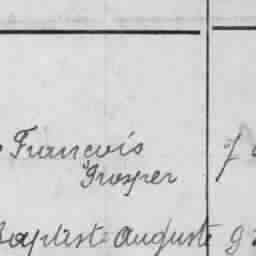 François
Prosper
Baptiste Auguste